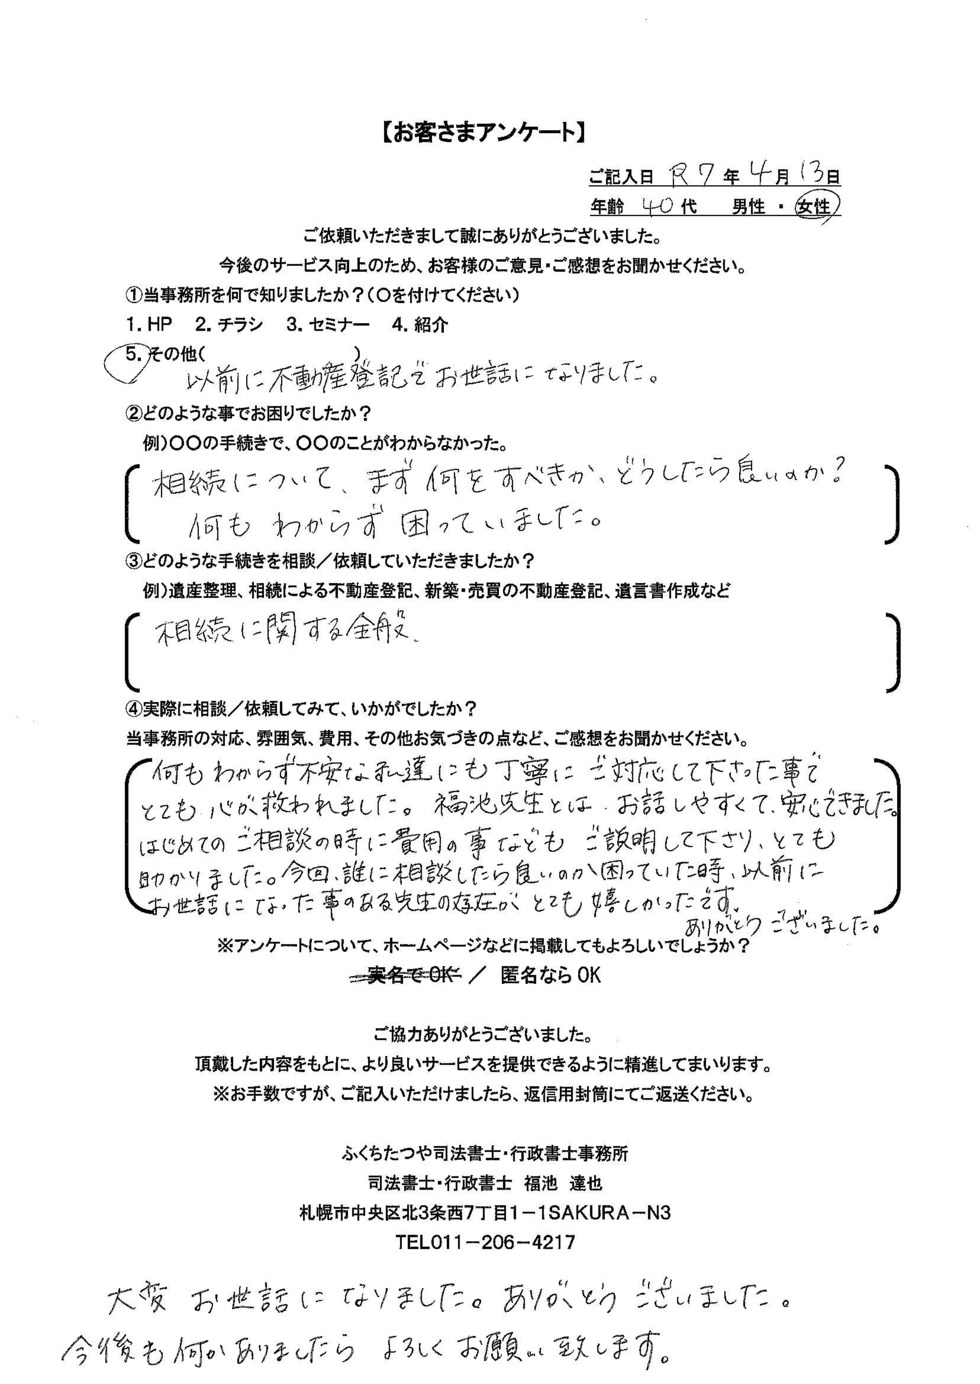 【お客さまアンケート】
ご記入日 R7年4月13日
年齢 40代 男性・女性
ご依頼いただきまして誠にありがとうございました。
今後のサービス向上のため、お客様のご意見・ご感想をお聞かせください。
①当事務所を何で知りましたか？(○を付けてください)
1. HP 2. チラシ 3. セミナー 4. 紹介
5. その他( )
以前に不動産登記でお世話になりました。
②どのような事でお困りでしたか？
例)○○の手続きで、○○のことがわからなかった。
相続について、まず何をすべきか、どうしたら良いのか?
何もわからず困っていました。
③どのような手続きを相談／依頼していただきましたか？
例)遺産整理、相続による不動産登記、新築・売買の不動産登記、遺言書作成など
相続に関する全般.
④実際に相談／依頼してみて、いかがでしたか？
当事務所の対応、雰囲気、費用、その他お気づきの点など、ご感想をお聞かせください。
何もわからず不安な私達にも丁寧にご対応して下さった事で
とても心が救われました。福池先生とは、お話しやすくて、安心できました。
はじめてのご相談の時に費用の事などもご説明して下さり、とても
助かりました。今回、誰に相談したら良いのか困っていた時、以前に
お世話になった事のある先生の存在がとても嬉しかったです。
ありがとうございました。
※アンケートについて、ホームページなどに掲載してもよろしいでしょうか？
実名でOK ／ 匿名ならOK
ご協力ありがとうございました。
頂戴した内容をもとに、より良いサービスを提供できるように精進してまいります。
※お手数ですが、ご記入いただけましたら、返信用封筒にてご返送ください。
ふくちたつや司法書士・行政書士事務所
司法書士・行政書士 福池 達也
札幌市中央区北3条西7丁目1－1SAKURA－N3
TEL011－206－4217
大変お世話になりました。ありがとうございました。
今後も何かありましたらよろしくお願い致します。